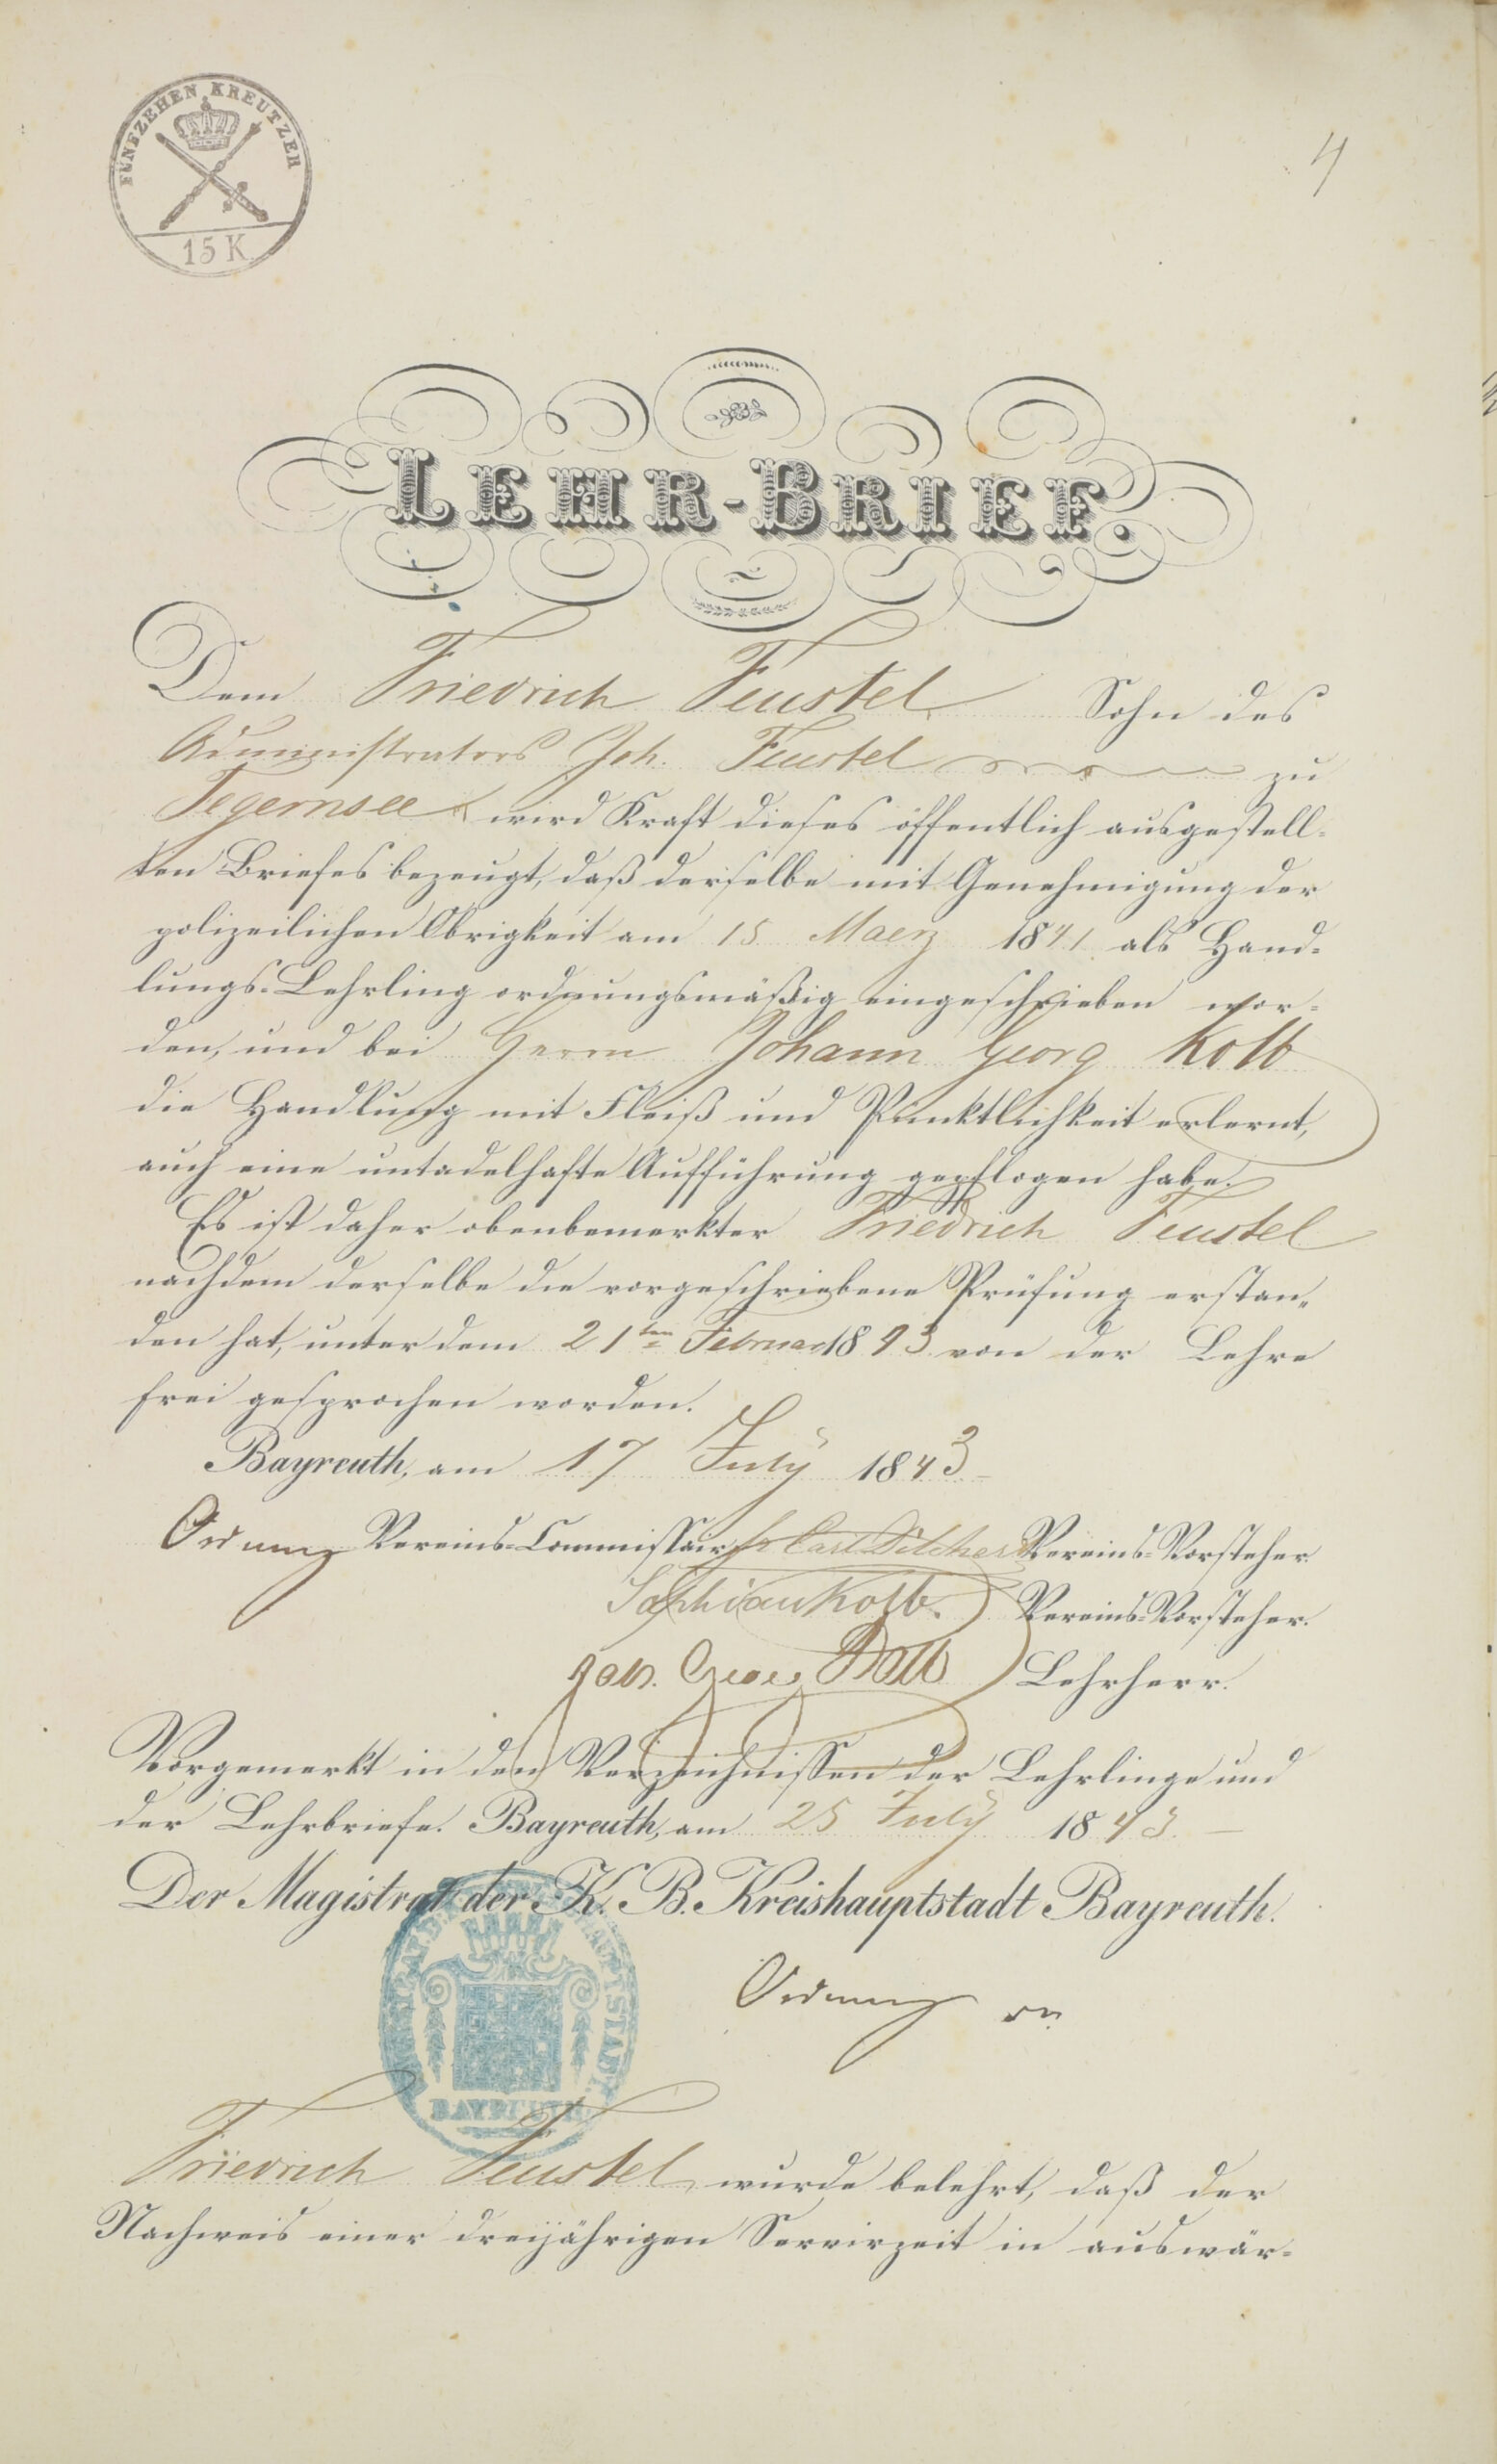 FÜNFZEHEN KREUTZER
15 K
4
LEHR-BRIEF.
Dem Friedrich Feustel Sohn des
Administrators Joh. Feustel zu
Tegernsee wird Kraft dieses öffentlich ausgestell-
ten Briefes bezeugt, daß derselbe mit Genehmigung der
polizeilichen Obrigkeit am 15 Maerz 1841 als Hand-
lungs-Lehrling ordnungsmäßig eingeschrieben wor-
den, und bei Herrn Johann Georg Kolb
die Handlung mit Fleiß und Punktlichkeit erlernt,
auch eine untadelhafte Aufführung gepflogen habe.
Es ist daher obenbemerkter Friedrich Feustel
nachdem derselbe die vorgeschriebene Prüfung erstan-
den hat, unter dem 21ten Februar 1843 von der Lehre
frei gesprochen worden.
Bayreuth, am 17 July 1843
Vereins-Commissair Carl Vereins-Vorsteher
Kolb. Vereins-Vorsteher.
Joh. Georg Kolb Lehrherr.
Vorgemerkt in den Verzeichnissen der Lehrlinge und
der Lehrbriefe. Bayreuth, am 25 July 1843.
Der Magistrat der K. B. Kreishauptstadt Bayreuth.
BAYREUTH
Friedrich Feustel wurde belehrt, daß der
Nachweis einer dreijährigen Servirzeit in auswär-